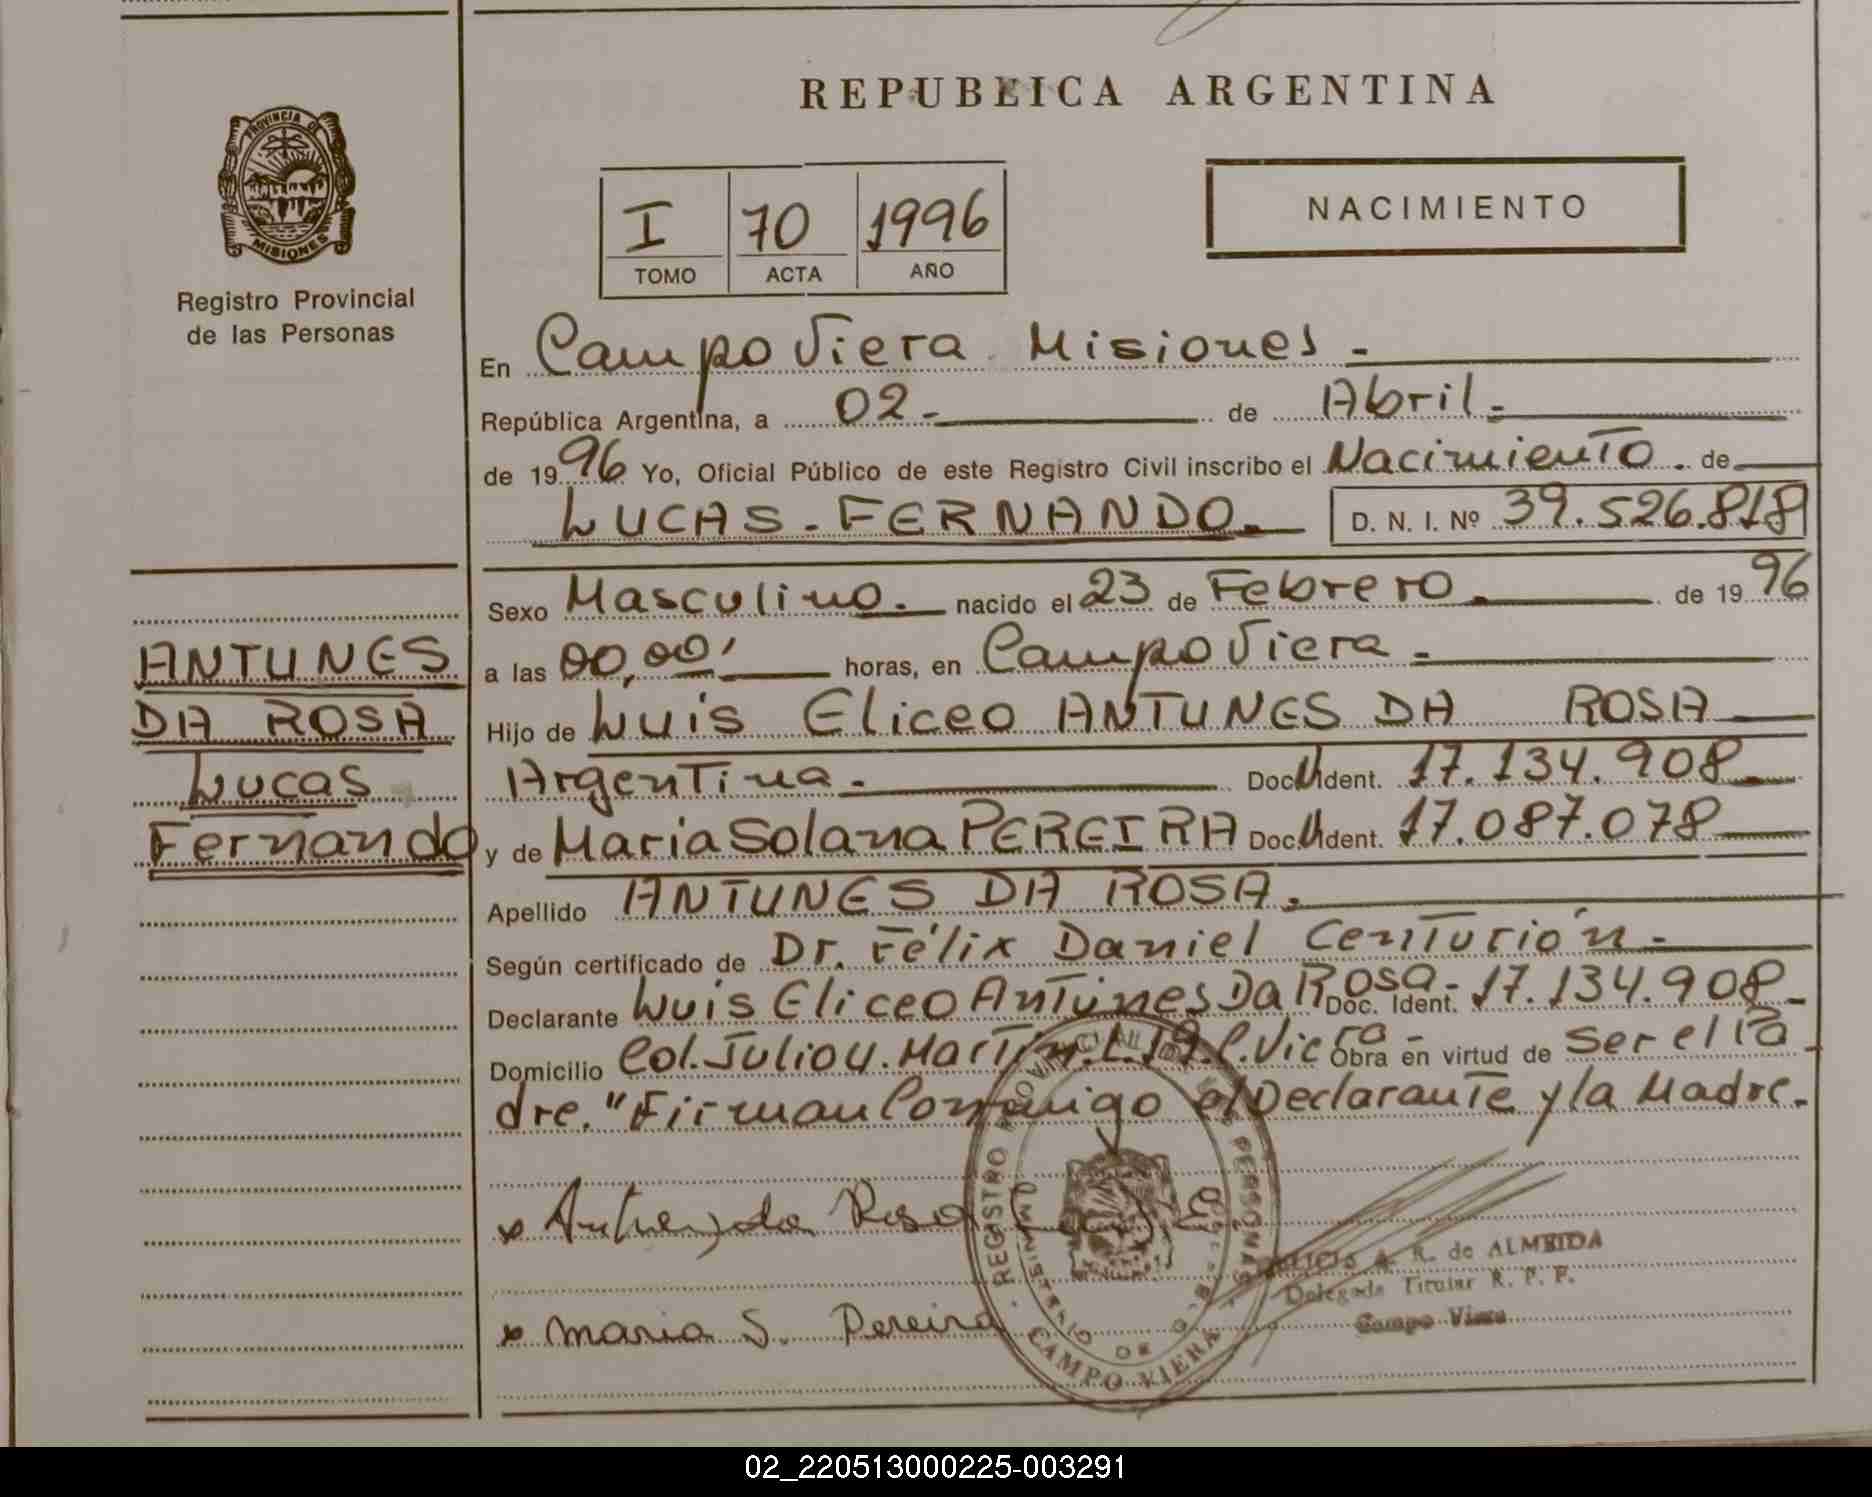 REPUBLICA ARGENTINA
PROVINCIA DE
MISIONES
Registro Provincial
de las Personas
I 70 1996
TOMO ACTA AÑO
NACIMIENTO
En Campo Viera Misiones.-
República Argentina, a 02.- de Abril.-
de 1996 Yo, Oficial Público de este Registro Civil inscribo el Nacimiento. de
LUCAS-FERNANDO. D. N. I. Nº 39.526.818
Sexo Masculino. nacido el 23 de Febrero. de 1996
a las 00,00' horas, en Campo Viera.-
Hijo de Luis Eliceo ANTUNES DA ROSA
Argentina.- Doc. Ident. 17.134.908
y de Maria Solana PEREIRA Doc. Ident. 17.087.078
Apellido ANTUNES DA ROSA.
Según certificado de Dr. Félix Daniel Centurión.-
Declarante Luis Eliceo Antunes Da Rosa- Doc. Ident. 17.134.908-
Domicilio Col. Julio U. Martin. L.19. C. Viera- Obra en virtud de ser el Pa
dre. "Firman Conmigo el Declarante y la Madre.
ANTUNES
DA ROSA
Lucas
Fernando
x Antunes da Rosa
x Maria S. Pereira
REGISTRO PROVINCIAL DE LAS PERSONAS
MINISTERIO DE GOBIERNO
CAMPO VIERA
A. R. de ALMEIDA
Delegada Titular R. P. P.
Campo Viera
02_220513000225-003291